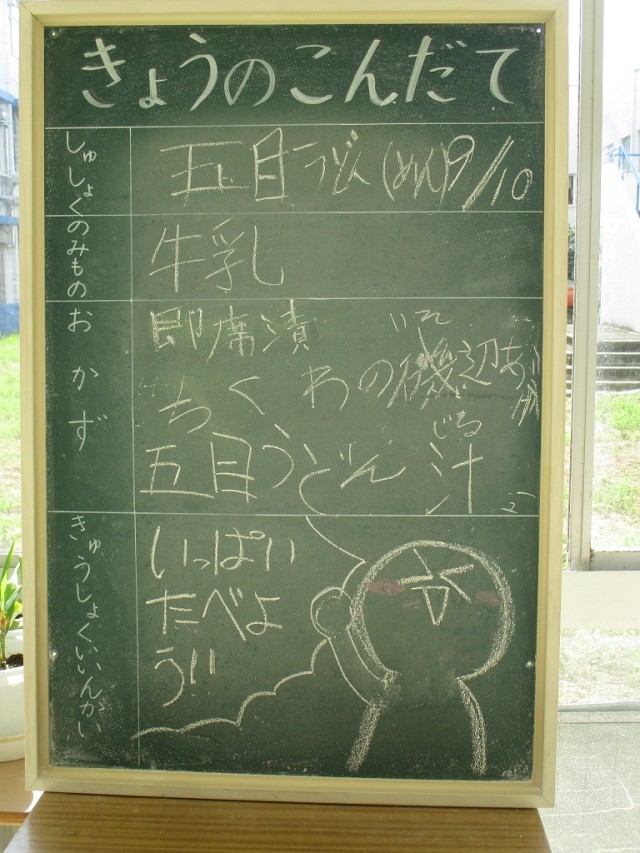 きょうのこんだて
しゅしょく
五目うどん(めん)9/10
のみもの
牛乳
おかず
即席漬
いそ
ちくわの磯辺あげ
じる
五目うどん汁
きゅうしょくいいんかい
いっぱい
たべよ
う!!